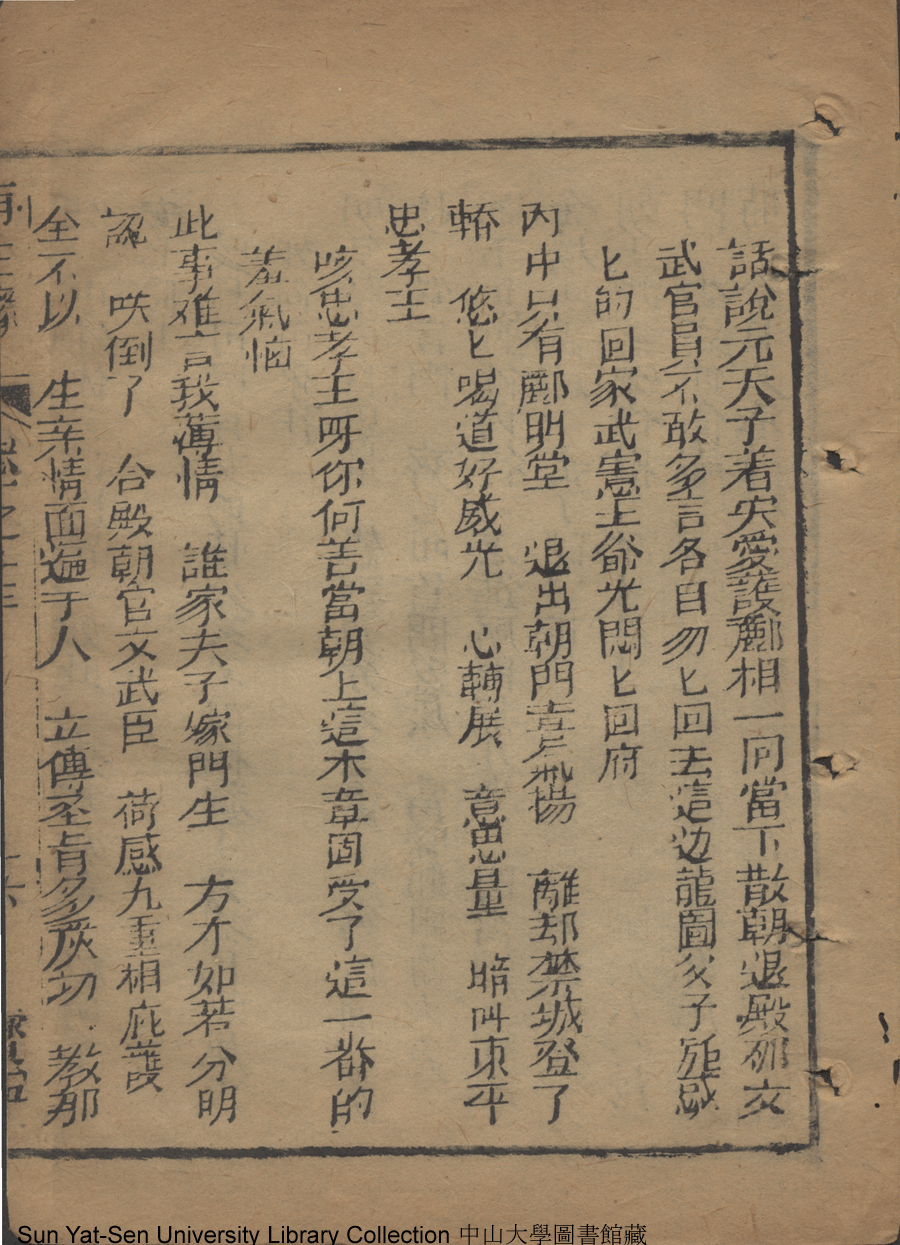 話說元天子着宍愛護酈相一向當下散朝退殿衆文
武官員不敢多言各自勿匕回去這边龍圖父子雖感
匕的回家武憲王爺光悶匕回府
內中只有酈明堂　退出朝門喜氣揚　離却禁城登了
轎　悠匕喝道好威光　心轉展　意思量　暗叫東平
忠孝王
咳忠孝王呀你何苦當朝上這本章固受了這一塲的
羞氣恼
此事难言我薄情　誰家夫子嫁門生　方才如若分明
認　唊倒了　合殿朝官文武臣　荷感九重相庇護
全不以　生亲情面迤于人　立傳圣旨多嚴切　教那
卷之十三